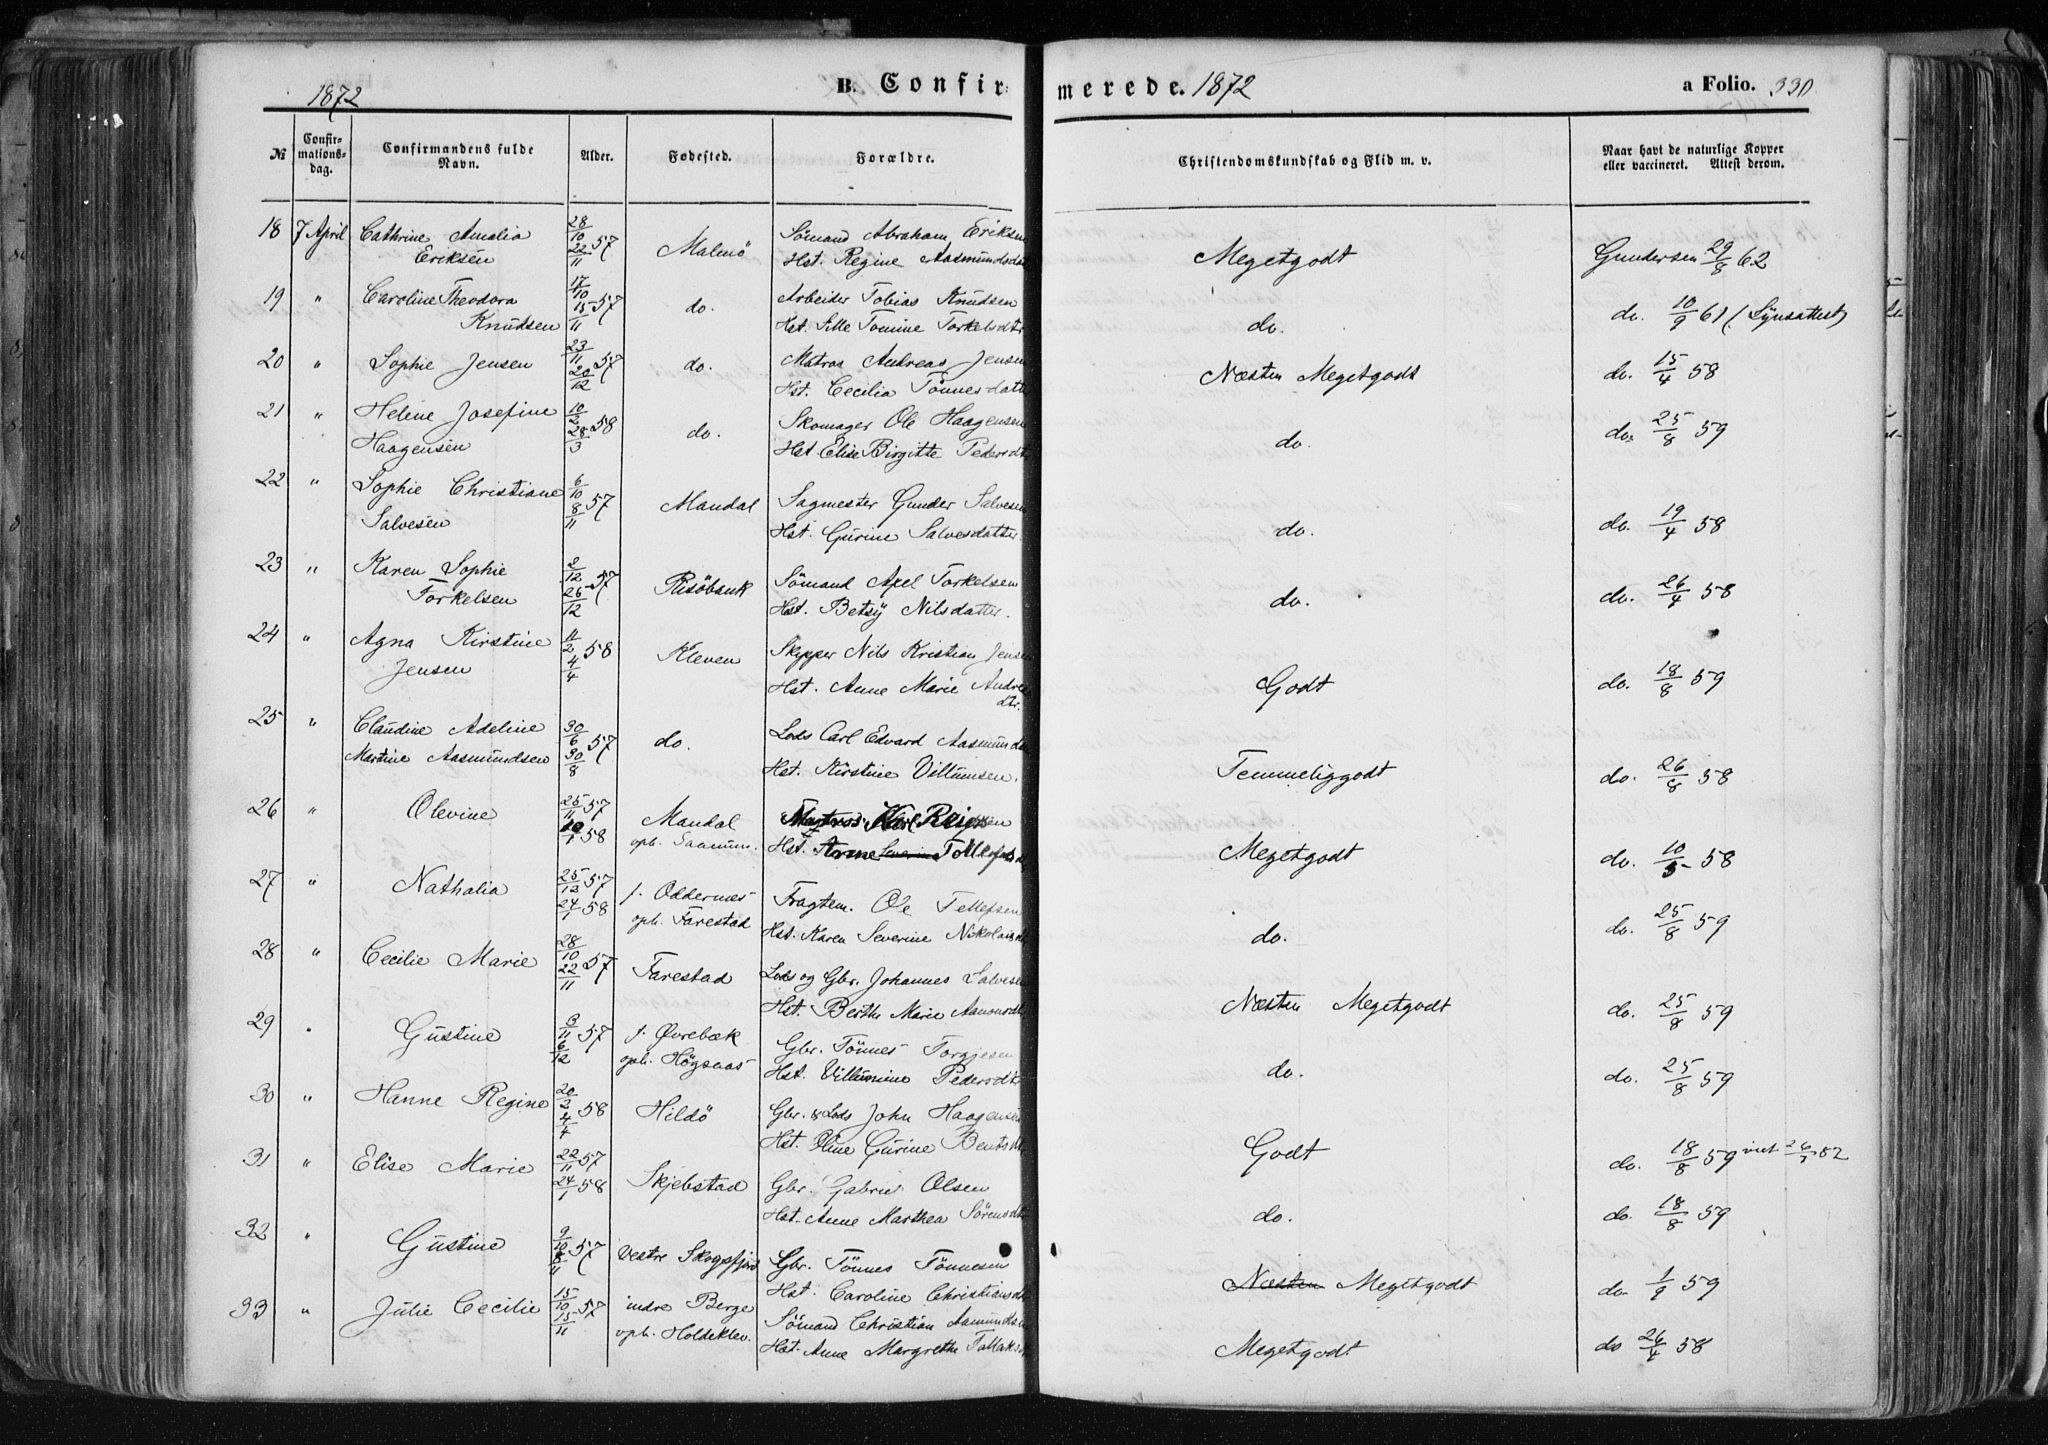 1872 B. Confirmerede. 1872 a Folio. 330
№ Confirmations-dag. Confirmandens fulde Navn. Alder. Fødested. Forældre. Christendomskundskab og Flid m. v. Naar havt de naturlige Kopper eller vaccineret. Attest derom.
18 7 April Cathrine Amalia 28/10 57 Malmö Sömand Abraham Eriksen Megetgodt Gundersen 29/8 62
Eriksen 22/11 Hst. Regine Aasmundsdatt
19 " Caroline Theodora 17/10 57 do. Arbeider Tobias Knudsen do. do. 10/9 61 (Synsattest)
Knudsen 15/11 Hst. Sille Tomine Torkelsdtr
20 " Sophie Jensen 23/11 57 do. Matros Andreas Jensen Næsten Megetgodt do. 15/4 58
20/12 Hst. Cecilia Tönnesdatte
21 " Helene Josefine 10/2 58 do. Skomager Ole Haagensen do. do. 25/8 59
Haagensen 28/3 Hst. Elise Birgitte Pedersdt
22 " Sophie Christiane 6/10 57 Mandal Sagmester Gunder Salvesen do. do. 19/4 58
Salvesen 8/11 Hst. Gurine Salvesdatter.
23 " Karen Sophie 2/12 57 Risöbank Sömand Axel Torkelsen do. do. 26/4 58
Torkelsen 26/12 Hst. Betsy Nilsdatter.
24 " Agna Kirstine 11/2 58 Kleven Skipper Nils Kristian Jensen Godt do. 18/8 59
Jensen 4/4 Hst. Anne Marie Andrea
dtr.
25 " Claudine Adeline 30/6 57 do. Lods Carl Edvard Aasmunds Temmeliggodt do. 26/8 58
Martine Aasmundsen 30/8 Hst. Kirstine Villumsen.
26 " Olevine 25/11 57 Mandal Matros Karl Reiersen Megetgodt do. 10/5 58
10/1 58 oph. Saanum. Hst. Anne Severine
27 " Nathalia 25/12 57 f. Oddernes Fragtem. Ole Tellefsen do. do. 25/8 59
24/1 58 oph. Farestad Hst. Karen Severine Nikolaisdt
28 " Cecilie Marie 28/10 57 Farestad Lods og Gbr. Johannes Salvesen Næsten Megetgodt do. 25/8 59
22/11 Hst. Berthe Marie Aanonsdt
29 " Gustine 3/11 57 f. Øvrebæk Gbr. Tönnes Torgjesen do. do. 25/8 59
6/12 oph. Högsaas Hst. Villumine Pedersdt
30 " Hanne Regine 20/2 58 Hildö Gbr. & Lods John Haagensen Godt do. 18/8 59
4/4 Hst. Oline Gurine Bentsdt
31 " Elise Marie 22/11 57 Skjebstad Gbr. Gabriel Olsen do. do. 18/8 59
24/1 58 Hst. Anne Marthea Sörensdt
32 " Gustine 9/10 57 Vestre Skogsfjord Gbr. Tönnes Tönnesen Næsten Megetgodt do. 1/9 59
8/11 Hst. Caroline Christiansdt
33 " Julie Cecilie 15/10 57 indre Berge Sömand Christian Aamundsen Megetgodt do 26/4 58
15/11 oph. Holdeklev. Hst. Anne Margrethe Tallaks